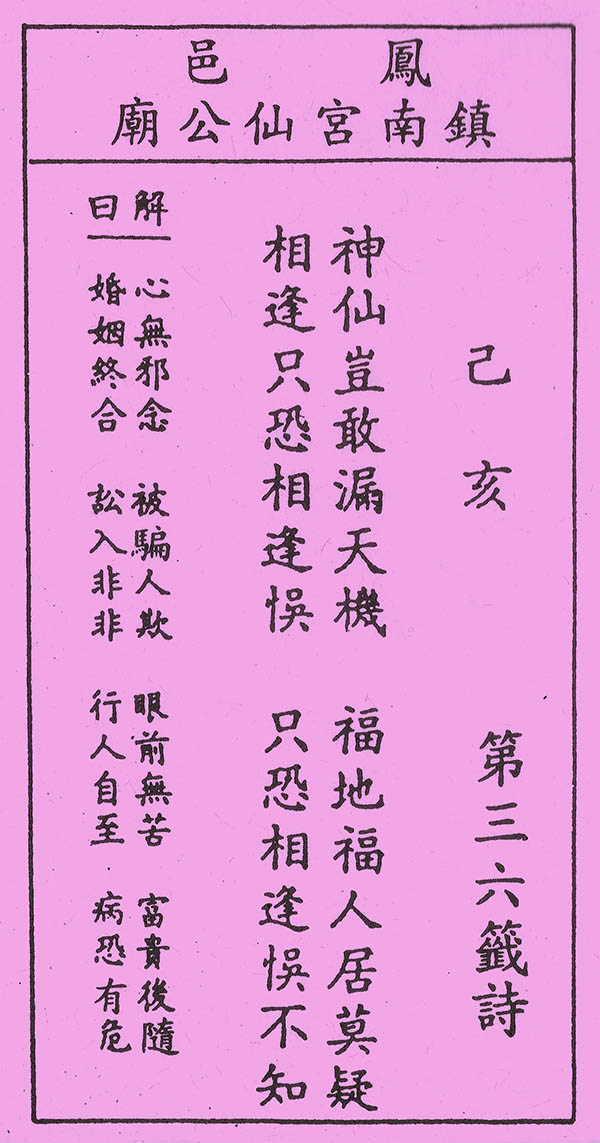 鳳邑
鎮南宮仙公廟
己亥 第三六籤詩
神仙豈敢漏天機 福地福人居莫疑
相逢只恐相逢悞 只恐相逢悞不知
解曰
心無邪念 被騙人欺 眼前無苦 富貴後隨
婚姻終合 訟入非非 行人自至 病恐有危